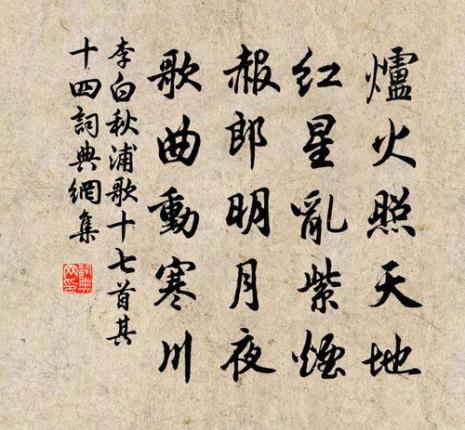 爐火照天地
红星亂紫煙
赧郎明月夜
歌曲動寒川
李白秋浦歌十七首其
十四詞典網集